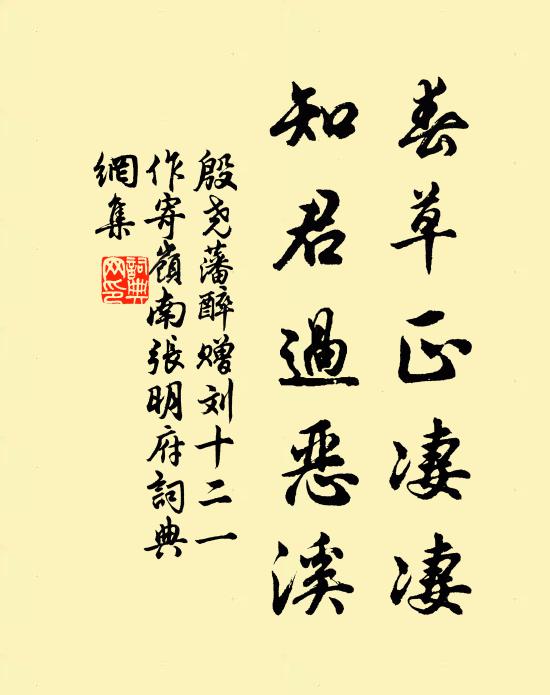 春草正凄凄
知君過惡溪
殷尧藩醉赠刘十二一
作寄嶺南張明府詞典
網集
詞典
网印